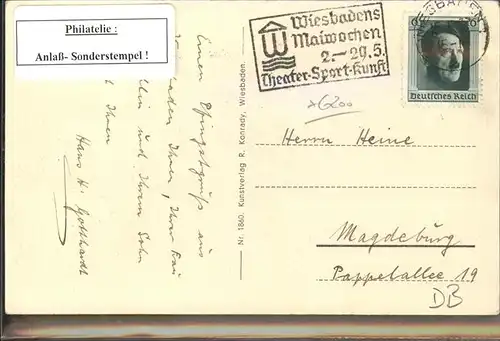 Philatelie :
Anlaß- Sonderstempel !
Wiesbadens
Maiwochen
2.-29.5.
Theater-Sport-Kunst
WIESBADEN
Deutsches Reich
6200
Herrn Heine
Magdeburg
Pappelallee 19
DB
Nr. 1860. Kunstverlag R. Konrady, Wiesbaden.
Einen Pfingstgruß aus
Ihnen, Ihrer Frau
und Ihrem Sohn
Ihren
Hans H. Gotthardt